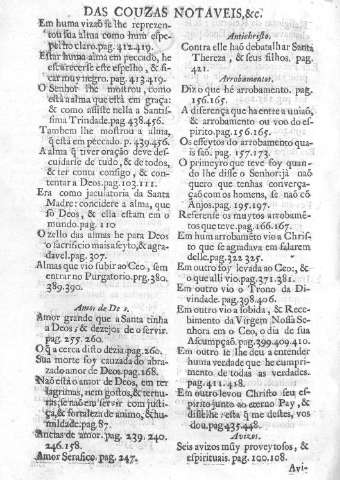 DAS COUZAS NOTAVEIS,&c.
Em huma vizaõ se lhe reprezen-
tou sua alma como hum espe-
pelho claro.pag.412.419.
Estar huma alma em peccado, he
estarecerse este espelho, & fi-
car muy negro.pag. 413.419.
O Senhor lhe mostrou, como
està a alma que està em graça:
& como assiste nella a Santis-
sima Trindade.pag 438.456.
Tambem lhe mostrou a alma,
q̃ està em peccado. p. 439.456.
A alma q̃ tiver oraçaõ deve des-
cuidarse de tudo, & de todos,
& ter conta comsigo, & con-
tentar a Deos.pag.103.111.
Era como jaculatoria da Santa
Madre: concidere a alma, que
só Deos, & ella estam em o
mundo.pag. 110
O zello das almas he para Deos
o sacrificio mais aseyto,& agra-
davel.pag. 307.
Almas que vio subir ao Ceo, sem
entrar no Purgatorio.prg.380,
389.390.
Amor de De
Amor grande que a Santa tinha
a Deos, & dezejos de o servir.
pag. 255. 260.
O q̃ a cerca disto dézia.pag.260.
Sua morte foy cauzada do abra-
zado amor de Deos.pag.168.
Naõ està o amor de Deos, em ter
lagrimas, nem gostos,& ternu-
ras; se naõ em servir com justi-
ça,& fortaleza de animo, & hu-
mildade.pag.87.
Ancias de amor. pag. 239. 240.
246.158.
Amor Serafico.pag. 247.
Antichristo.
Contra elle haõ debatalhar Santa
Thereza, & seus filhos. pag.
421.
Arrobamentos.
Diz o que hé arrobamento. pag.
156.165.
A differença que ha entre a uniaõ,
& arrobamento ou voo do es-
pirito.pag.156.165.
Os effeytos do arrobamento qua-
is saõ. pag. 157.173.
O primeyro que teve foy quan-
do lhe disse o Senhor:já naõ
quero que tenhas converça-
çaõ com os homens, se naõ cõ
Anjos.pag.195.197.
Referense os muytos arrobamē-
tos que teve.pag.166.167.
Em hum arrobamēto vio a Chris-
to que se agradava em falarem
delle.pag.322 325.
Em outro foy levada ao Ceo; &
o que alli vio.pag.371.381.
Em outro vio o Trono da Di-
vindade. pag.398.406.
Em outro vio a sobida, & Rece-
bimento da Virgem Nossa Se-
nhora em o Ceo, o dia de sua
Ascumpçaõ.pag.399.409.410.
Em outro se lhe deu a entender
huma verdade que he cumpri-
mento de todas as verdades.
pag.411.418.
Em outro levou Christo seu es-
pirito junto ao eterno Pay, &
disselhe: esta q̃ me destes, vos
dou.pag.435.448.
Avizos.
Seis avizos muy proveytosos, &
espirituais. pag. 100.108.
Avi-